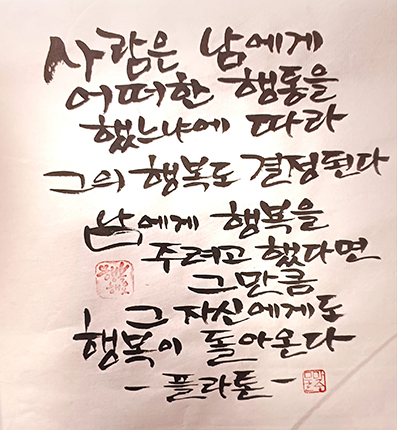 사람은 남에게
어떠한 행동을
했느냐에 따라
그의 행복도 결정된다
남에게 행복을
주려고 했다면
그만큼
그 자신에게도
행복이 돌아온다
- 플라톤 -